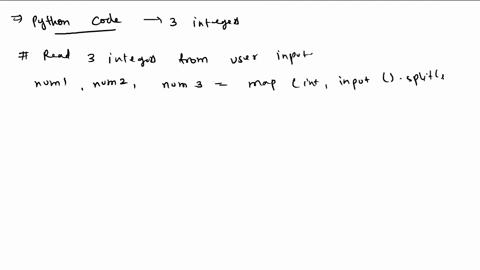 ⇒ Python Code → 3 integers
# Read 3 integers from user input
num1, num2, num3 = map (int, input ().split(